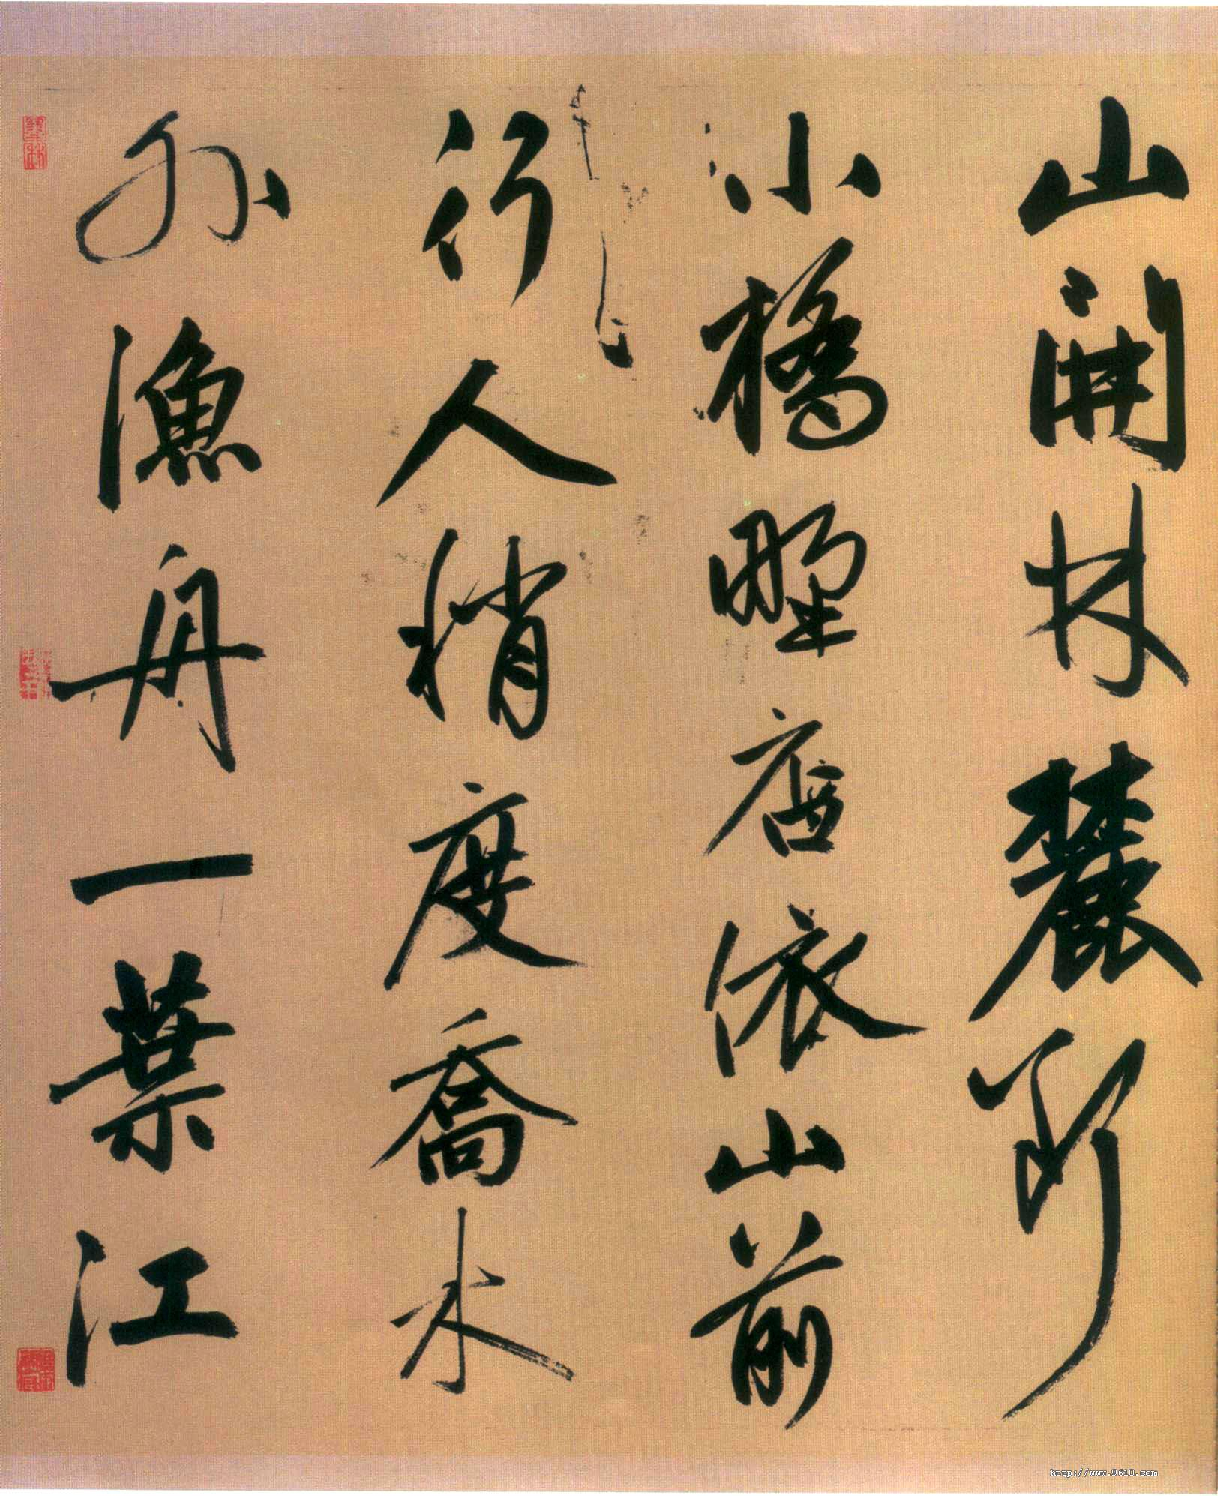 山開林麓斷
小橋野店依山前
行人稍度喬木
外漁舟一葉江
http://www.9610.com